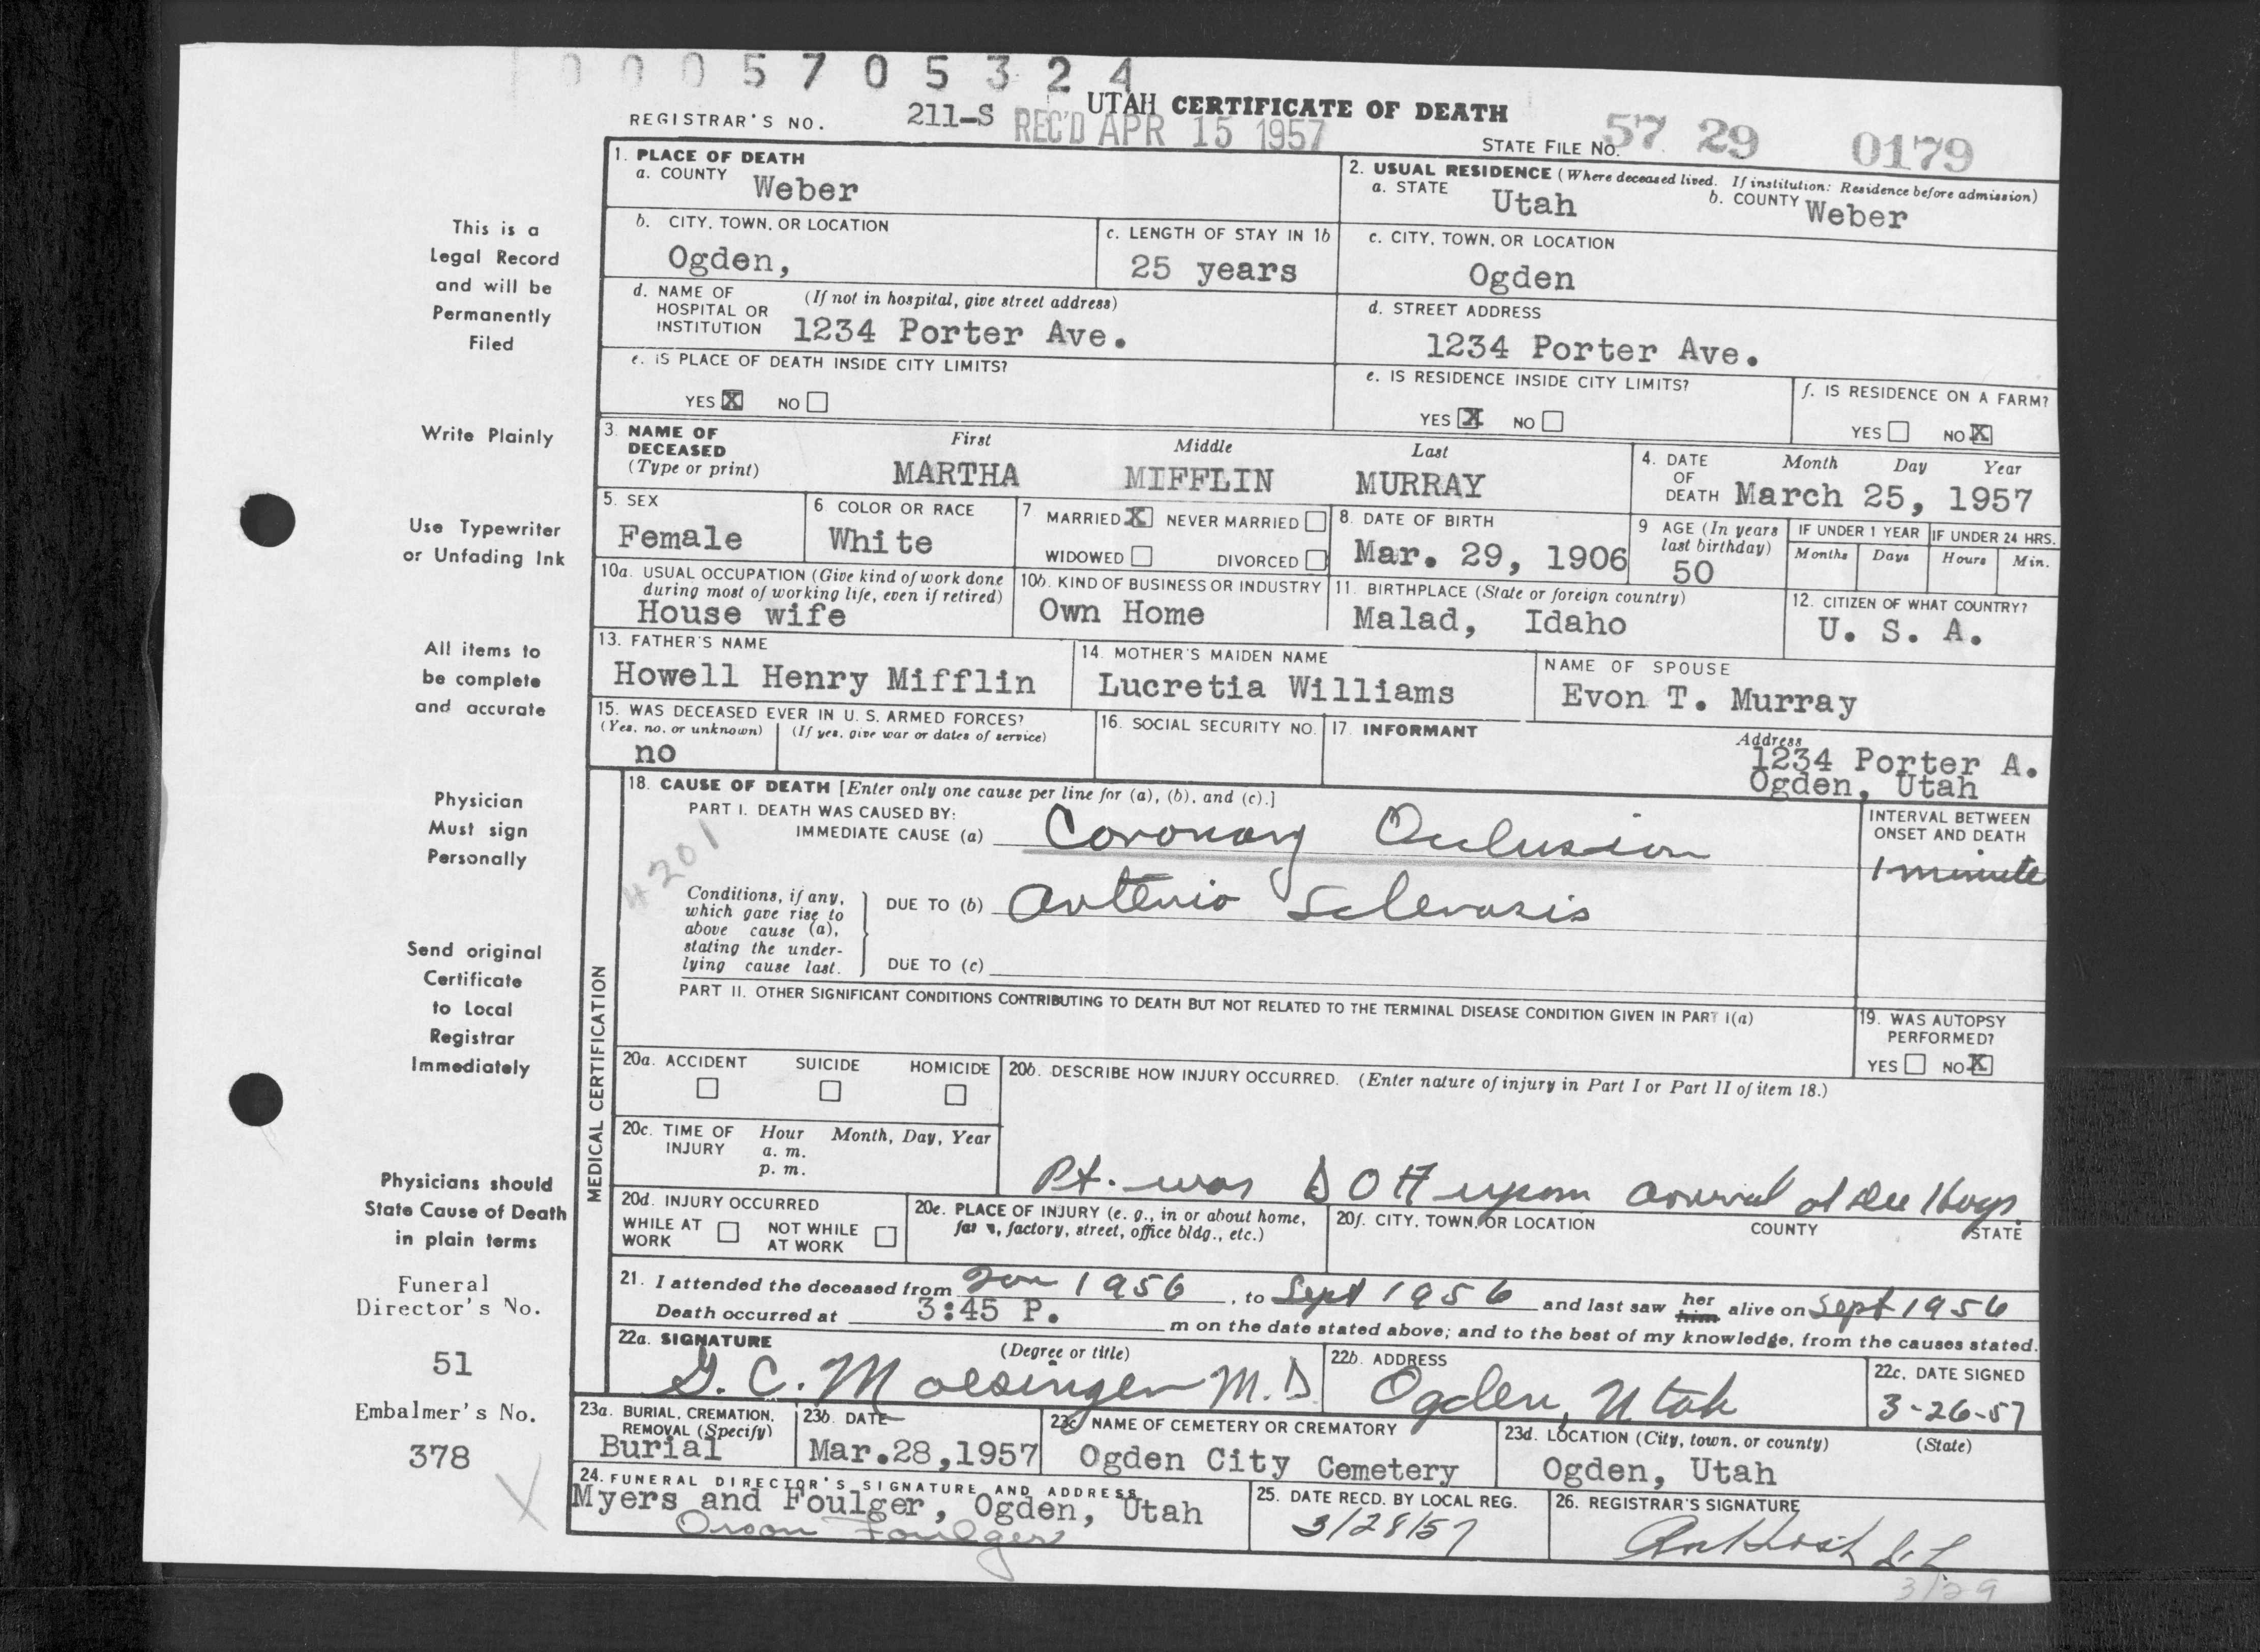 0005705324
UTAH CERTIFICATE OF DEATH
REGISTRAR'S NO. 211-S REC'D APR 15 1957 STATE FILE NO. 57 29 0179
1. PLACE OF DEATH
a. COUNTY Weber
2. USUAL RESIDENCE (Where deceased lived. If institution: Residence before admission)
a. STATE Utah b. COUNTY Weber
b. CITY, TOWN, OR LOCATION Ogden,
c. LENGTH OF STAY IN 1b 25 years
c. CITY, TOWN, OR LOCATION Ogden
d. NAME OF HOSPITAL OR INSTITUTION (If not in hospital, give street address) 1234 Porter Ave.
d. STREET ADDRESS 1234 Porter Ave.
e. IS PLACE OF DEATH INSIDE CITY LIMITS?
YES X NO
e. IS RESIDENCE INSIDE CITY LIMITS?
YES X NO
f. IS RESIDENCE ON A FARM?
YES NO X
3. NAME OF DECEASED (Type or print)
First Middle Last
MARTHA MIFFLIN MURRAY
4. DATE OF DEATH Month Day Year
March 25, 1957
5. SEX Female
6 COLOR OR RACE White
7 MARRIED X NEVER MARRIED
WIDOWED DIVORCED
8. DATE OF BIRTH Mar. 29, 1906
9 AGE (In years last birthday) 50
IF UNDER 1 YEAR Months Days
IF UNDER 24 HRS. Hours Min.
10a. USUAL OCCUPATION (Give kind of work done during most of working life, even if retired) House wife
10b. KIND OF BUSINESS OR INDUSTRY Own Home
11. BIRTHPLACE (State or foreign country) Malad, Idaho
12. CITIZEN OF WHAT COUNTRY? U. S. A.
13. FATHER'S NAME Howell Henry Mifflin
14. MOTHER'S MAIDEN NAME Lucretia Williams
NAME OF SPOUSE Evon T. Murray
15. WAS DECEASED EVER IN U. S. ARMED FORCES?
(Yes, no, or unknown) (If yes, give war or dates of service)
no
16. SOCIAL SECURITY NO.
17. INFORMANT Address
1234 Porter A.
Ogden, Utah
18. CAUSE OF DEATH [Enter only one cause per line for (a), (b), and (c).]
PART I. DEATH WAS CAUSED BY:
IMMEDIATE CAUSE (a) Coronary Occlusion
INTERVAL BETWEEN ONSET AND DEATH
1 minute
4201
Conditions, if any, which gave rise to above cause (a), stating the underlying cause last.
DUE TO (b) Arterio Sclerosis
DUE TO (c)
PART II. OTHER SIGNIFICANT CONDITIONS CONTRIBUTING TO DEATH BUT NOT RELATED TO THE TERMINAL DISEASE CONDITION GIVEN IN PART I(a)
19. WAS AUTOPSY PERFORMED?
YES NO X
MEDICAL CERTIFICATION
20a. ACCIDENT SUICIDE HOMICIDE
20b. DESCRIBE HOW INJURY OCCURRED. (Enter nature of injury in Part I or Part II of item 18.)
20c. TIME OF INJURY Hour Month, Day, Year
a. m.
p. m.
Pt. was D O A upon arrival at Dee Hosp.
20d. INJURY OCCURRED
WHILE AT WORK NOT WHILE AT WORK
20e. PLACE OF INJURY (e. g., in or about home, farm, factory, street, office bldg., etc.)
20f. CITY, TOWN, OR LOCATION COUNTY STATE
21. I attended the deceased from Jan 1956, to Sept 1956 and last saw her him alive on Sept 1956
Death occurred at 3:45 P. m on the date stated above; and to the best of my knowledge, from the causes stated.
22a. SIGNATURE (Degree or title)
G. C. Moesinger M.D.
22b. ADDRESS Ogden, Utah
22c. DATE SIGNED 3-26-57
23a. BURIAL, CREMATION, REMOVAL (Specify) Burial
23b. DATE Mar.28,1957
23c NAME OF CEMETERY OR CREMATORY Ogden City Cemetery
23d. LOCATION (City, town, or county) (State)
Ogden, Utah
24. FUNERAL DIRECTOR'S SIGNATURE AND ADDRESS
Myers and Foulger, Ogden, Utah
Orson Foulger
25. DATE RECD. BY LOCAL REG. 3/28/57
26. REGISTRAR'S SIGNATURE
3/29
This is a
Legal Record
and will be
Permanently
Filed
Write Plainly
Use Typewriter
or Unfading Ink
All items to
be complete
and accurate
Physician
Must sign
Personally
Send original
Certificate
to Local
Registrar
Immediately
Physicians should
State Cause of Death
in plain terms
Funeral
Director's No.
51
Embalmer's No.
378